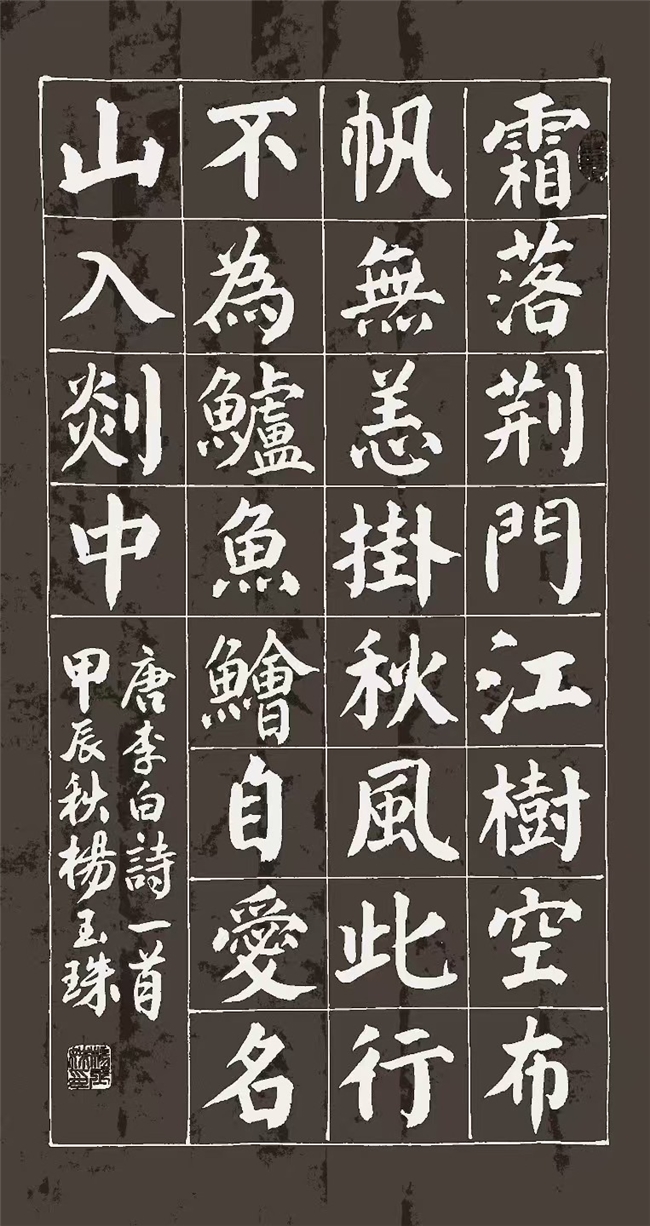 霜落荆門江樹空布
帆無恙掛秋風此行
不為鱸魚鱠自愛名
山入剡中
唐李白詩一首
甲辰秋楊玉珠